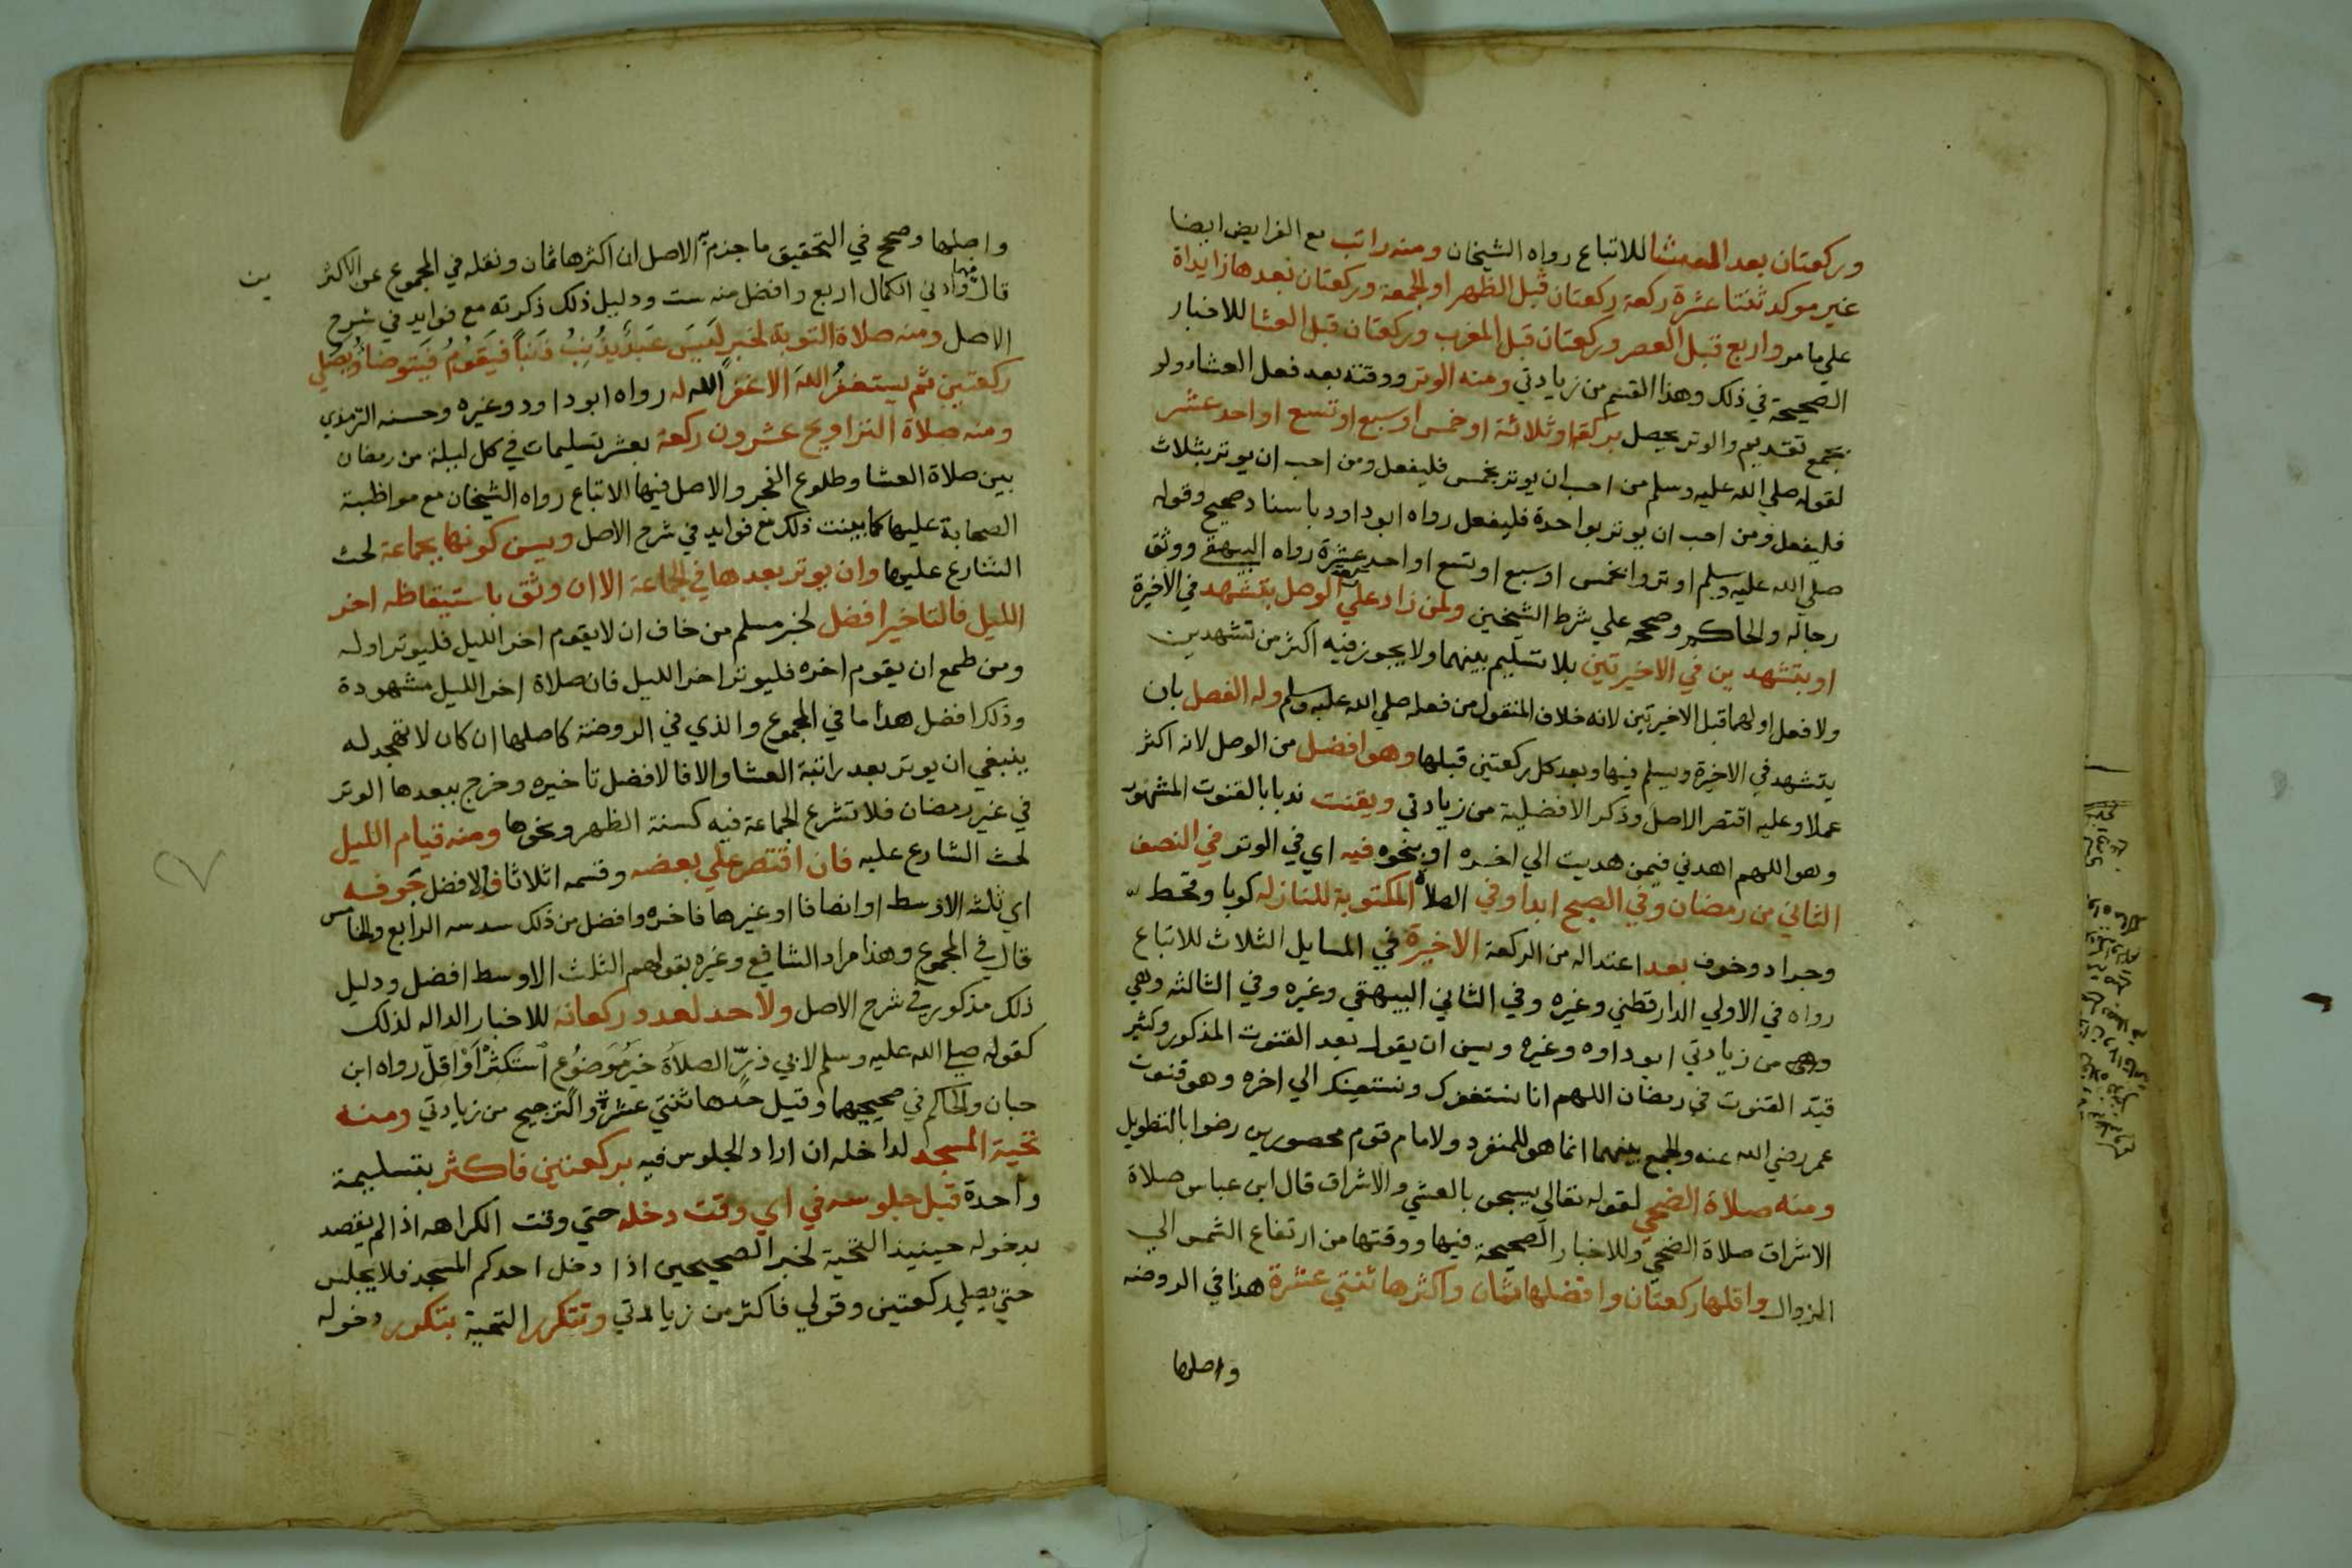 وركعتان بعد العشا للاتباع رواه الشيخان ومنه راتب مع الفرايض ايضا
غير موكد ثنتا عشرة ركعة ركعتان قبل الظهر او الجمعة وركعتان بعدها زايداة
علي ما مر واربع قبل العصر وركعتان قبل المغرب وركعتان قبل العشا للاخبار
الصحيحة في ذلك وهذا القسم من زيادتي ومنه الوتر ووقته بعد فعل العشاء ولو
بجمع تقديم والوتر يحصل بركعة او ثلاثة او خمس او سبع او تسع او احد عشر
لقوله صلي الله عليه وسلم من احب ان يوتر بخمس فليفعل ومن احب ان يوتر بثلاث
فليفعل ومن احب ان يوتر بواحدة فليفعل رواه ابو داود باسناد صحيح وقوله
صلي الله عليه وسلم اوتروا بخمس او سبع او تسع او احد عشرة رواه البيهقي ووثق
رجاله والحاكم وصححه علي شرط الشيخين ولمن زاد علي ركعة الوصل بتشهد في الاخيرة
او بتشهدين في الاخيرتين بلا تسليم بينهما ولا يجوز فيه اكثر من تشهدين
ولا فعل اولهما قبل الاخيرتين لانه خلاف المنقول من فعله صلي الله عليه وسلم وله الفصل بان
يتشهد في الاخيرة ويسلم فيها وبعد كل ركعتين قبلها وهو افضل من الوصل لانه اكثر
عملا وعليه اقتصر الاصل وذكر الافضلية من زيادتي ويقنت ندبا بالقنوت المشهور
وهو اللهم اهدني فيمن هديت الي اخره او بنحوه فيه اي في الوتر في النصف
الثاني من رمضان وفي الصبح ابدا وفي الصلاة المكتوبة للنازلة كوبا وقحط
وجراد وخوف بعد اعتداله من الركعة الاخيرة في المسايل الثلاث للاتباع
رواه في الاولي الدارقطني وغيره وفي الثاني البيهقي وغيره وفي الثالثه وهي
من زيادتي ابو داوه وغيره ويسن ان يقول بعد القنوت المذكور وكثير
قيد القنوت في رمضان اللهم انا نستغفرك ونستعينك الي اخره وهو قنوت
عمر رضي الله عنه والجمع بينهما انما هو للمنفرد ولامام قوم محصورين رضوا بالتطويل
ومنه صلاة الضحي لقوله تعالي يسبحن بالعشي والاشراق قال ابن عباس صلاة
الاشراق صلاة الضحي وللاخبار الصحيحة فيها ووقتها من ارتفاع الشمس الي
الزوال واقلها ركعتان وافضلها ثمان واكثرها ثنتي عشرة هذا في الروضه
واصلها
واصلها وصحح في التحقيق ما جزم به الاصل ان اكثرها ثمان ونقله في المجموع عن الاكثر
ين
قال فيهما وادني الكمال اربع وافضل منه ست ودليل ذلك ذكرته مع فوايد في شرح
الاصل ومنه صلاة التوبة لخبر لَيسَ عَبدٌ يذُنِبُ ذَنباً فيَقوُمُ فيَتوضا وُيصَلي
ركعتين ثم يستغفرُ اللهَ الا غفر الله له رواه ابو داود وغيره وحسنه الترمذي
ومنه صلاة التراويح عشرون ركعة بعشر تسليمات في كل ليلة من رمضان
بين صلاة العشا وطلوع الفجر والاصل فيها الاتباع رواه الشيخان مع مواظبة
الصحابة عليها كما بينت ذلك مع فوايد في شرح الاصل ويسن كونها بجماعة لحث
الشارع عليها وان يوتر بعدها في الجماعة الا ان وثق باستيقاظه اخر
الليل فالتاخير افضل لخبر مسلم من خاف ان لا يقوم اخر الليل فليوتر اوله
ومن طمع ان يقوم اخره فليوتر اخر الليل فان صلاة اخر الليل مشهودة
وذلك افضل هذا ما في المجموع والذي في الروضة كاصلها ان كان لا تهجد له
ينبغي ان يوتر بعد راتبة العشا والا فالافضل تاخيره وخرج ببعدها الوتر
في غير رمضان فلا تشرع الجماعة فيه كسنة الظهر ونحوها ومنه قيام الليل
لحث الشارع عليه فان اقتصر علي بعضه وقسمه اثلاثا فالافضل جوفه
اي ثلثه الاوسط او انصافا او غيرها فاخره وافضل من ذلك سدسه الرابع والخامس
قال في المجموع وهذا مراد الشافعي وغيره بقولهم الثلث الاوسط افضل ودليل
ذلك مذكور في شرح الاصل ولا حد لعدد ركعاته للاخبار الداله لذلك
كقوله صلي الله عليه وسلم لابي ذرّ الصلاَة خيرُ مَوضوُع استكثرْ اَوْ اقلّ رواه ابن
حبان والحاكم في صحيحيهما وقيل حدها ثنتي عشرة والترجيح من زيادتي ومنه
تحية المسجد لداخله ان اراد الجلوس فيه بركعتين فاكثر بتسليمة
واحدة قبل جلوسه في اي وقت دخله حتي وقت الكراهه اذا لم يقصد
بدخوله حينيذ التحية لخبر الصحيحين اذا دخل احدكم المسجد فلا يجلس
حتي يصلي ركعتين وقولي فاكثر من زيادتي وتتكرر التحية بتكرر دخوله